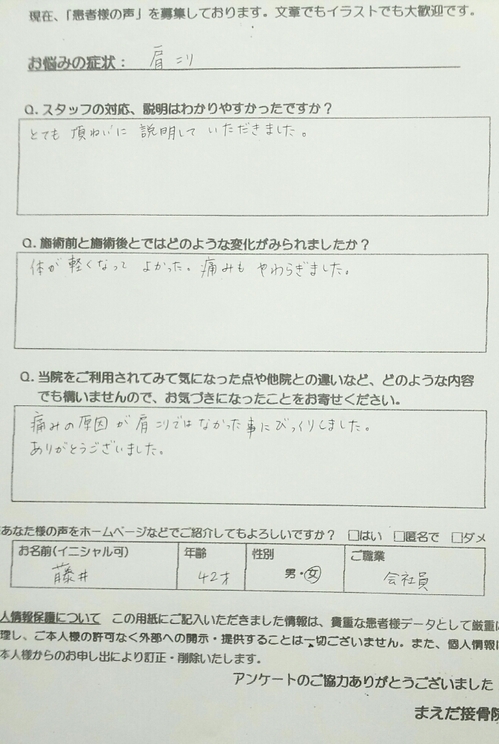 現在、「患者様の声」を募集しております。文章でもイラストでも大歓迎です。
お悩みの症状： 肩こり
Q.スタッフの対応、説明はわかりやすかったですか？
とても 頂ねいに 説明して いただきました。
Q.施術前と施術後とではどのような変化がみられましたか？
体が 軽くなって よかった。痛みも やわらぎました。
Q.当院をご利用されてみて気になった点や他院との違いなど、どのような内容
でも構いませんので、お気づきになったことをお寄せください。
痛みの原因が肩こりではなかった事にびっくりしました。
ありがとうございました。
あなた様の声をホームページなどでご紹介してもよろしいですか？ □はい □匿名で □ダメ
お名前(イニシャル可) 年齢 性別 ご職業
藤井 42才 男・女 会社員
人情報保護について この用紙にご記入いただきました情報は、貴重な患者様データとして厳重に
理し、ご本人様の許可なく外部への開示・提供することは一切ございません。また、個人情報は
本人様からのお申し出により訂正・削除いたします。
アンケートのご協力ありがとうございました
まえだ接骨院